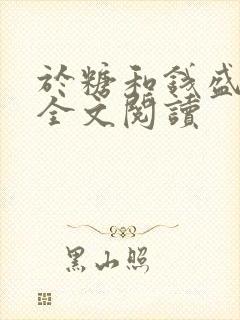 於糖和錢盛
全文閱讀
黑山照